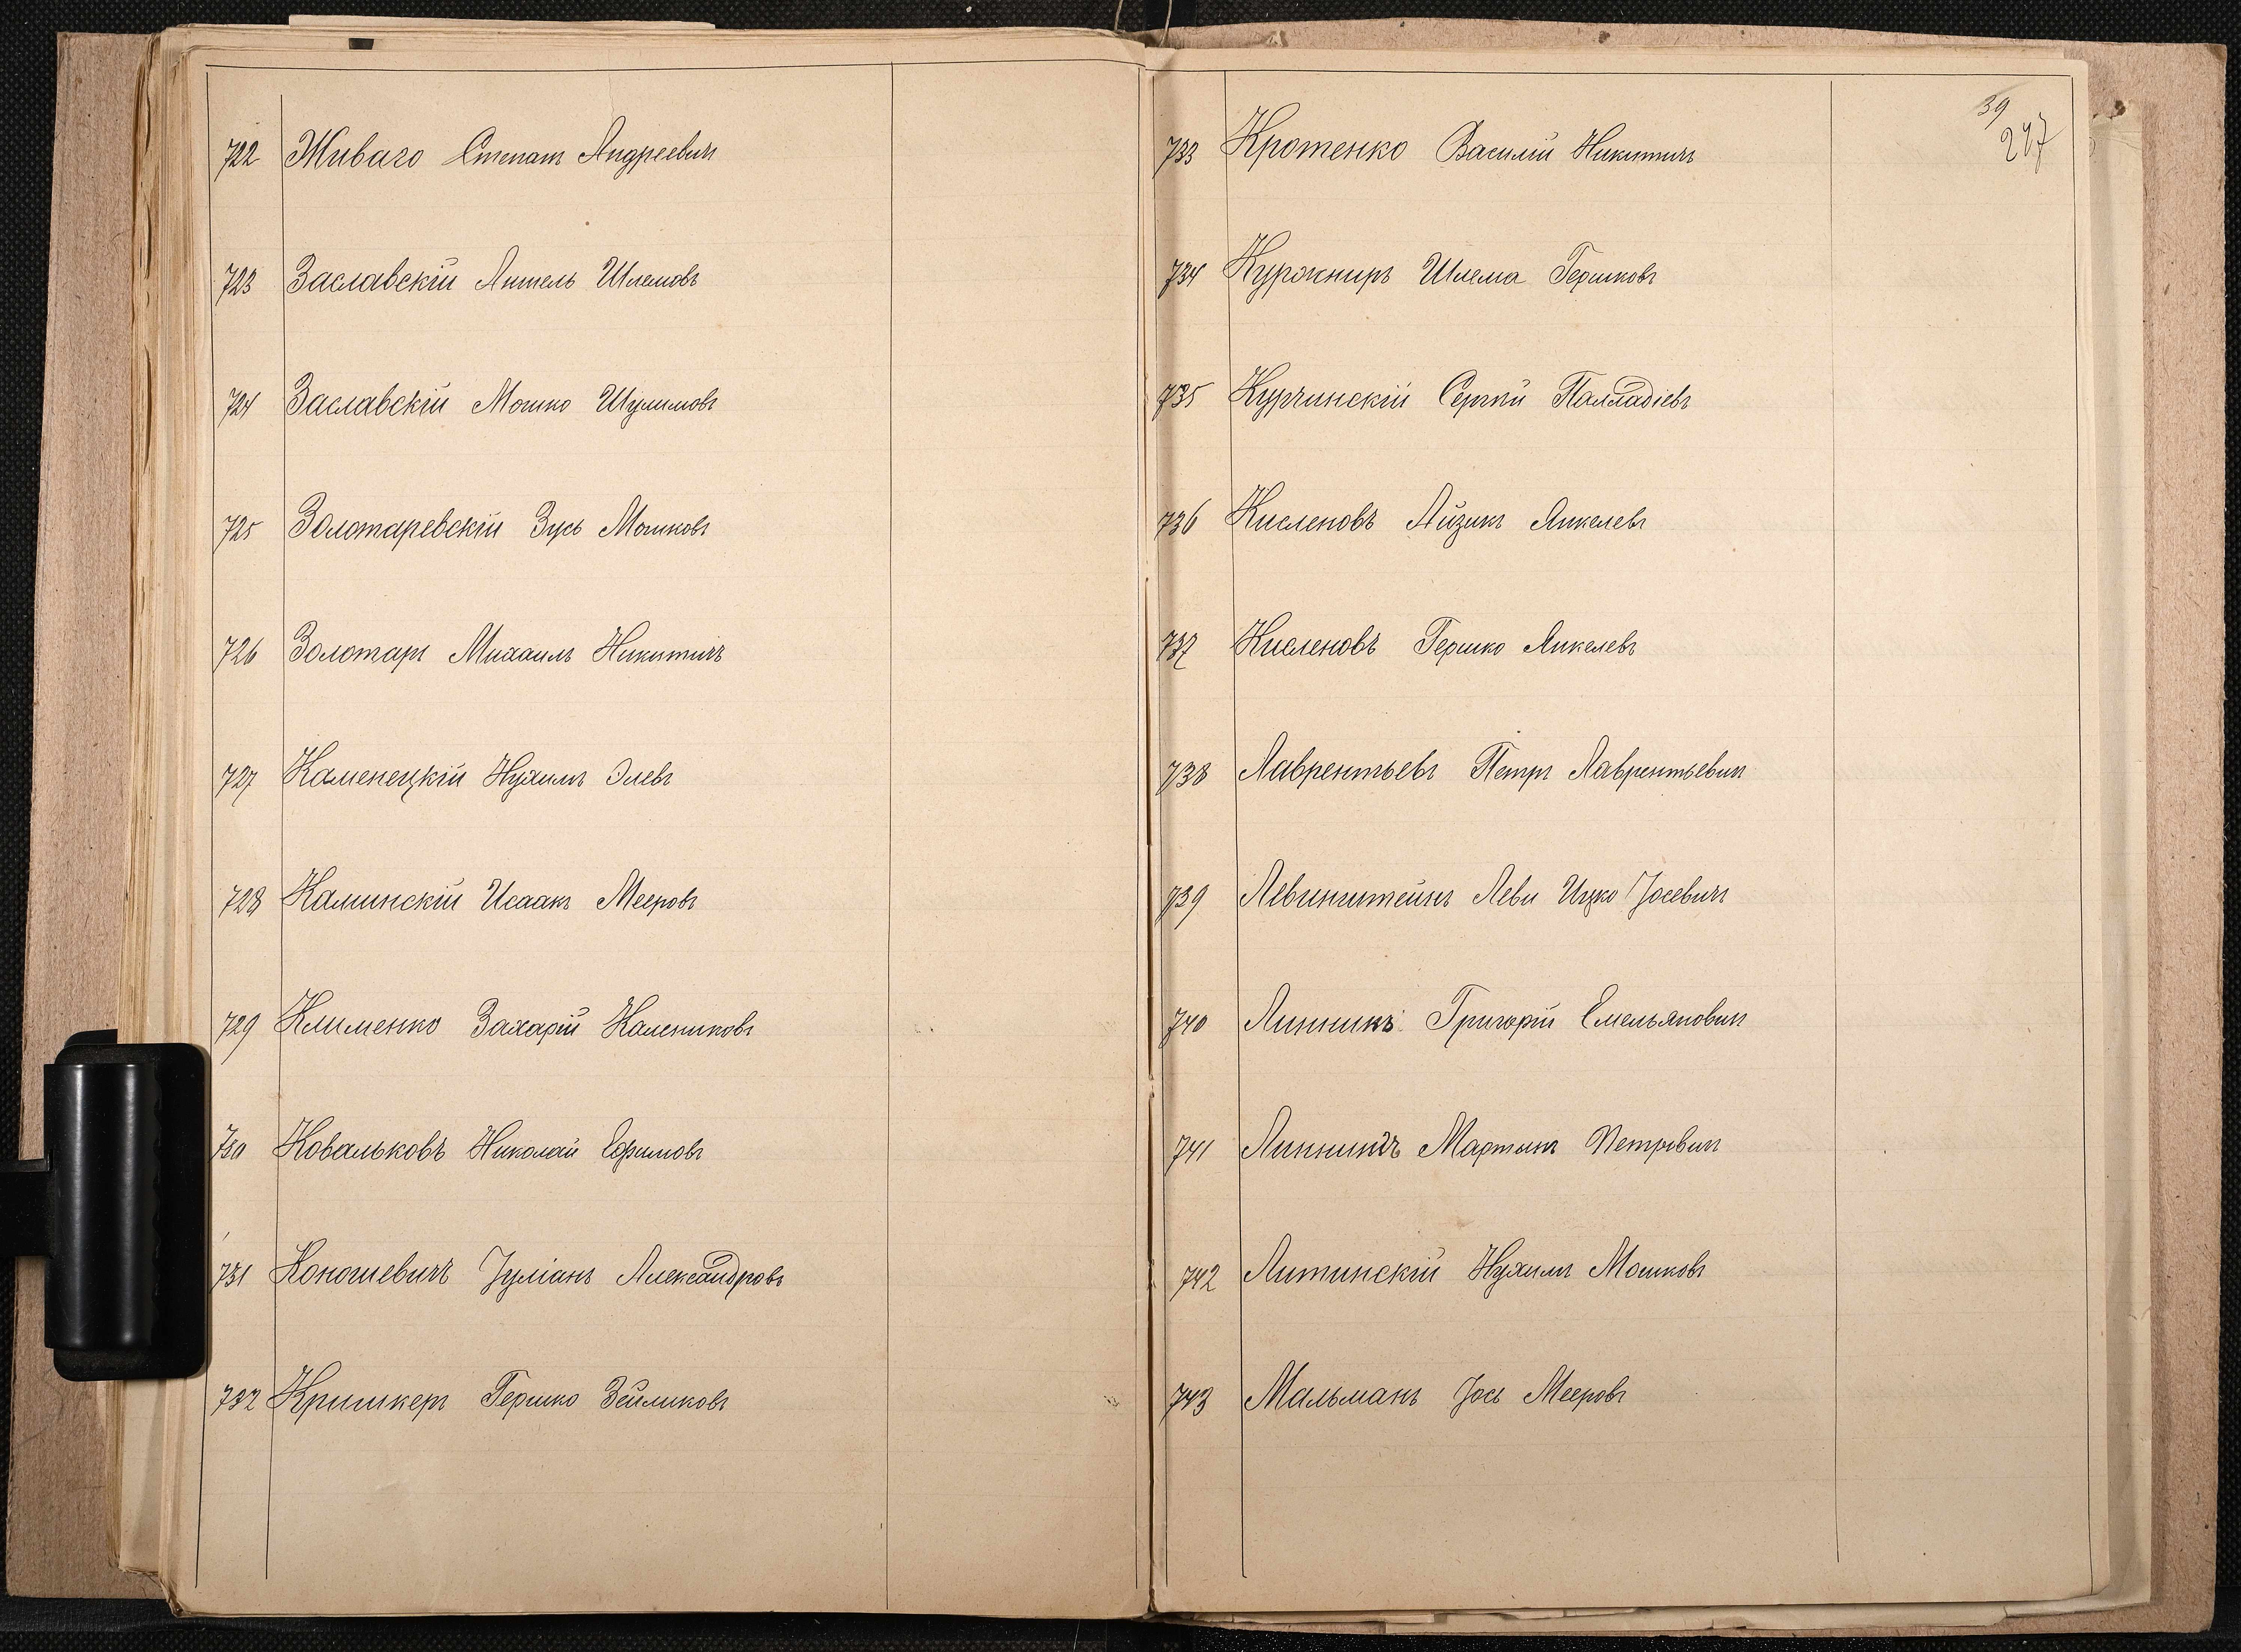 722 Живаго Степанъ Андреевичъ
723 Заславскій Аншель Шлемовъ
724 Заславскій Мошко Шулимовъ
725 Золотаревскій Зусь Мошковъ
726 Золотарь Михаилъ Никитичъ
727 Каменецкій Нухимъ Элевъ
728 Каминскій Исаакъ Мееровъ
729 Клименко Захарій Калениковъ
730 Ковальковъ Николай Ефимовъ
731 Коношевичъ Іуліанъ Александровъ
732 Кришкеръ Гершко Зейликовъ
39
247
733 Кротенко Василій Никитичъ
734 Курокниръ Шлема Гершковъ
735 Курчинскій Сергѣй Палладіевъ
736 Кисленовъ Айзикъ Янкелевъ
737 Кисленовъ Гершко Янкелевъ
738 Лаврентьевъ Петръ Лаврентьевичъ
739 Левинштейнъ Леви Ицко Іосевичъ
740 Линникъ Григорій Емельяновичъ
741 Линникъ Мартынъ Петровичъ
742 Литинскій Нухимъ Мошковъ
743 Мальманъ Іось Мееровъ